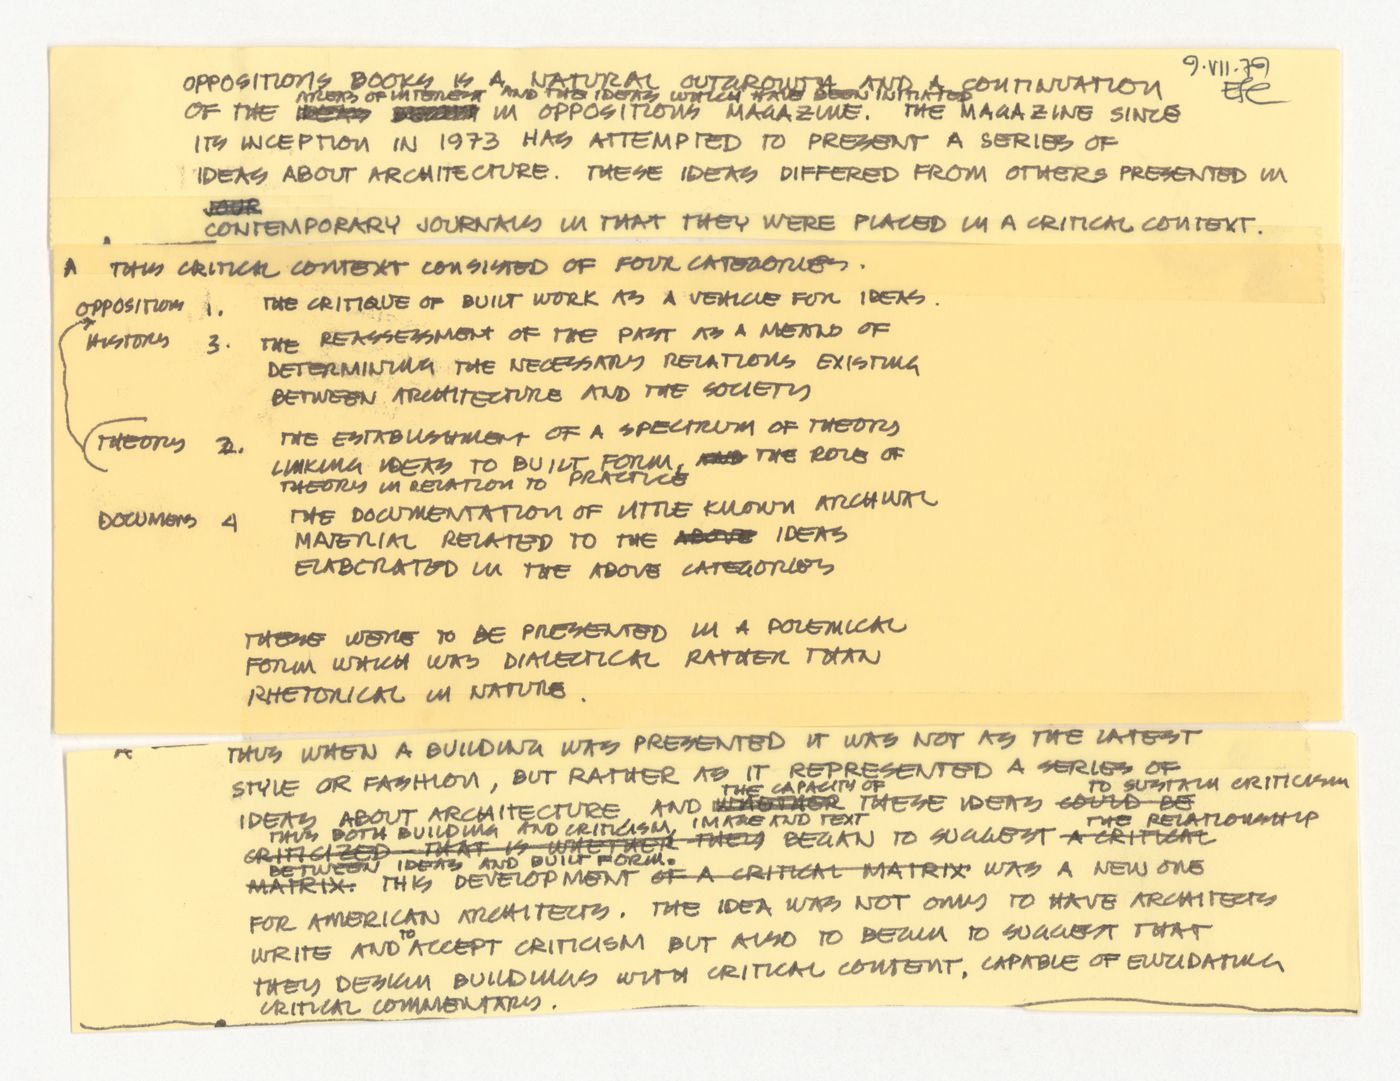 9·VII·79
OPPOSITIONS BOOKS IS A NATURAL OUTGROWTH AND A CONTINUATION
AREAS OF INTEREST AND THE IDEAS WHICH HAVE BEEN INITIATED
OF THE IN OPPOSITIONS MAGAZINE. THE MAGAZINE SINCE
ITS INCEPTION IN 1973 HAS ATTEMPTED TO PRESENT A SERIES OF
IDEAS ABOUT ARCHITECTURE. THESE IDEAS DIFFERED FROM OTHERS PRESENTED IN
JOUR
CONTEMPORARY JOURNALS IN THAT THEY WERE PLACED IN A CRITICAL CONTEXT.
A THIS CRITICAL CONTEXT CONSISTED OF FOUR CATEGORIES.
OPPOSITION 1. THE CRITIQUE OF BUILT WORK AS A VEHICLE FOR IDEAS.
HISTORY 3. THE REASSESSMENT OF THE PAST AS A MEANS OF
DETERMINING THE NECESSARY RELATIONS EXISTING
BETWEEN ARCHITECTURE AND THE SOCIETY
THEORY 2. THE ESTABLISHMENT OF A SPECTRUM OF THEORY
LINKING IDEAS TO BUILT FORM, AND THE ROLE OF
THEORY IN RELATION TO PRACTICE
DOCUMENTS 4 THE DOCUMENTATION OF LITTLE KNOWN ARCHIVAL
MATERIAL RELATED TO THE ABOVE IDEAS
ELABORATED IN THE ABOVE CATEGORIES
THESE WERE TO BE PRESENTED IN A POLEMICAL
FORM WHICH WAS DIALECTICAL RATHER THAN
RHETORICAL IN NATURE.
A THUS WHEN A BUILDING WAS PRESENTED IT WAS NOT AS THE LATEST
STYLE OR FASHION, BUT RATHER AS IT REPRESENTED A SERIES OF
THE CAPACITY OF TO SUSTAIN CRITICISM
IDEAS ABOUT ARCHITECTURE AND WHETHER THESE IDEAS COULD BE
THUS BOTH BUILDING AND CRITICISM, IMAGE AND TEXT THE RELATIONSHIP
CRITICIZED - THAT IS WHETHER THEY BEGAN TO SUGGEST A CRITICAL
BETWEEN IDEAS AND BUILT FORM.
MATRIX. THIS DEVELOPMENT OF A CRITICAL MATRIX WAS A NEW ONE
FOR AMERICAN ARCHITECTS. THE IDEA WAS NOT ONLY TO HAVE ARCHITECTS
TO
WRITE AND ACCEPT CRITICISM BUT ALSO TO BEGIN TO SUGGEST THAT
THEY DESIGN BUILDINGS WITH CRITICAL CONTENT, CAPABLE OF ELUCIDATING
CRITICAL COMMENTARY.